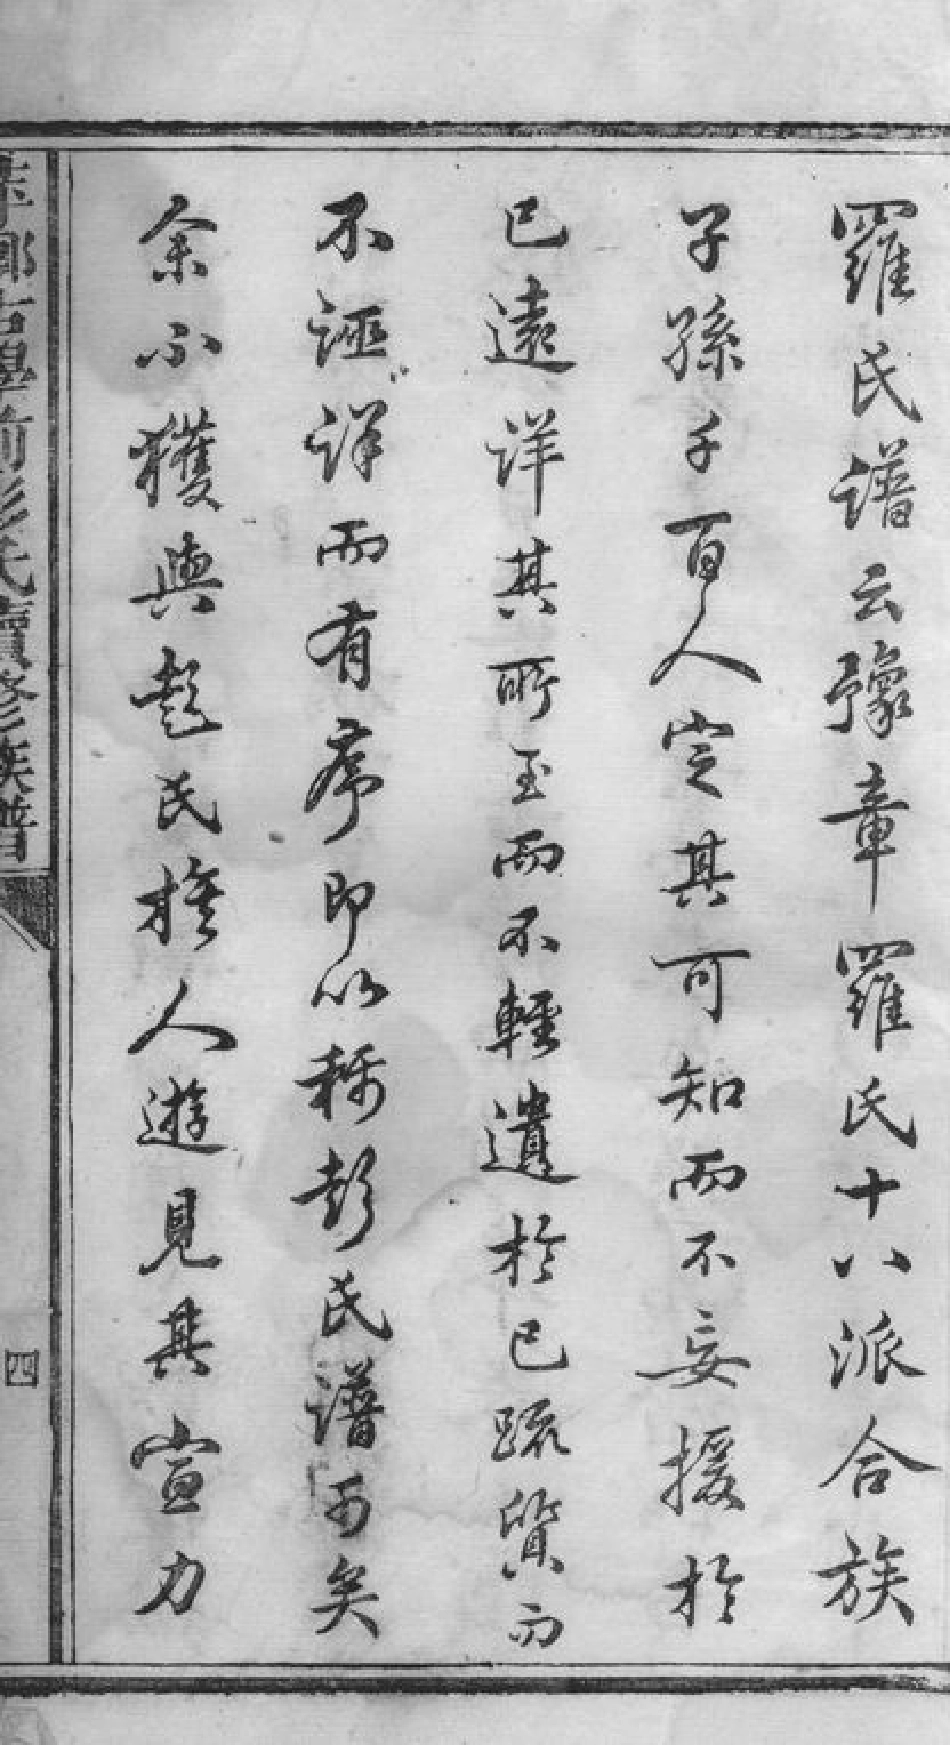 羅氏譜云豫章羅氏十八派合族
子孫千百人定其可知而不妄援於
已遠詳其所至而不輕遺於已疏質而
不誣詳而有序即以稱彭氏譜可矣
余不獲與彭氏族人遊見其宣力
彭氏續修族譜
四